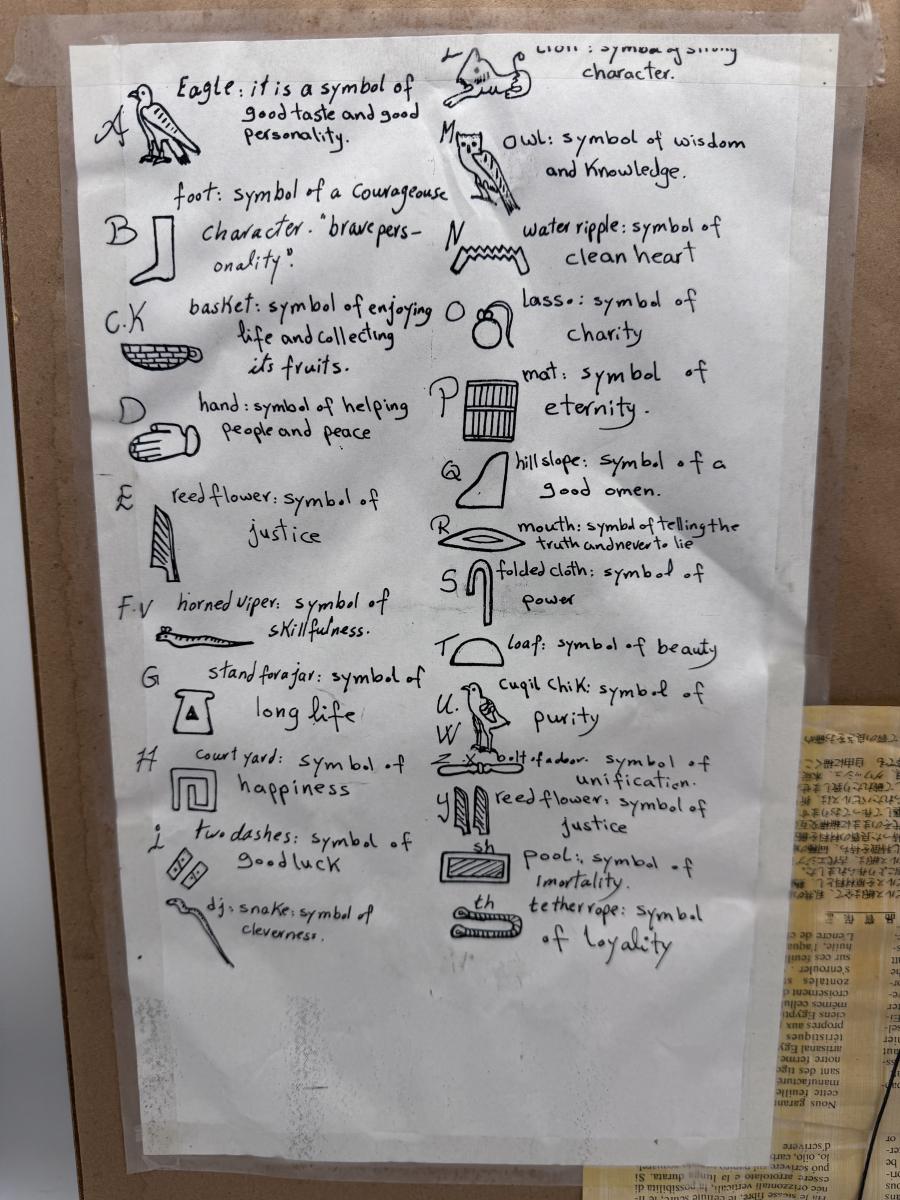 A
Eagle: it is a symbol of
good taste and good
personality.
foot: symbol of a Courageouse
B
character. "brave pers-
onality".
C.K
basket: symbol of enjoying
life and collecting
its fruits.
D
hand: symbol of helping
people and peace
E
reed flower: symbol of
justice
F.V
horned viper: symbol of
skillfulness.
G
stand for a jar: symbol of
long life
H
court yard: symbol of
happiness
i
two dashes: symbol of
good luck
dj: snake: symbol of
cleverness.
L
Lion: symbol of strong
character.
M
owl: symbol of wisdom
and Knowledge.
N
water ripple: symbol of
clean heart
O
lasso: symbol of
charity
P
mat: symbol of
eternity.
Q
hill slope: symbol of a
good omen.
R
mouth: symbol of telling the
truth and never to lie
S
folded cloth: symbol of
power
T
loaf: symbol of beauty
U.
W
Cuqil Chik: symbol of
purity
Z.X bolt of a door. symbol of
unification.
y
reed flower: symbol of
justice
sh
pool: symbol of
imortality.
th
tether rope: symbol
of loyality
Nous garan
cette feuille
manufacture
sant des tige
notre ferme
artisanal Egy
téristiques
propres aux
ciens Egypt
mêmes cellu
croisement d
zontales s
s'enrouler
sur ces feuill
huile, l'aqua
L'encre de c